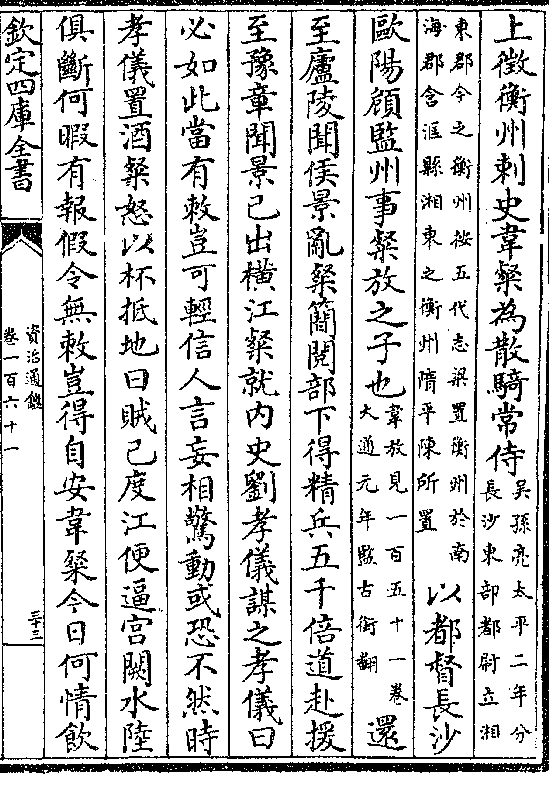 上徵衡州刺史韋粲為散騎常侍吳孫亮太平二年分長沙東部都尉立湘
東郡今之衡州按五代志梁置衡州於南海郡含洭縣湘東之衡州隋平陳所置以都督長沙
歐陽頠監州事粲放之子也韋放見一百五十一卷大通元年監古銜翻還
至廬陵聞侯景亂粲簡閱部下得精兵五千倍道赴援
至豫章聞景已出橫江粲就內史劉孝儀謀之孝儀曰
必如此當有敕豈可輕信人言妄相驚動或恐不然時
孝儀置酒粲怒以杯抵地曰賊已度江便逼宫闕水陸
俱斷何暇有報假令無敕豈得自安韋粲今日何情飲
欽定四庫全書
資治通鑑
卷一百六十一
三十三